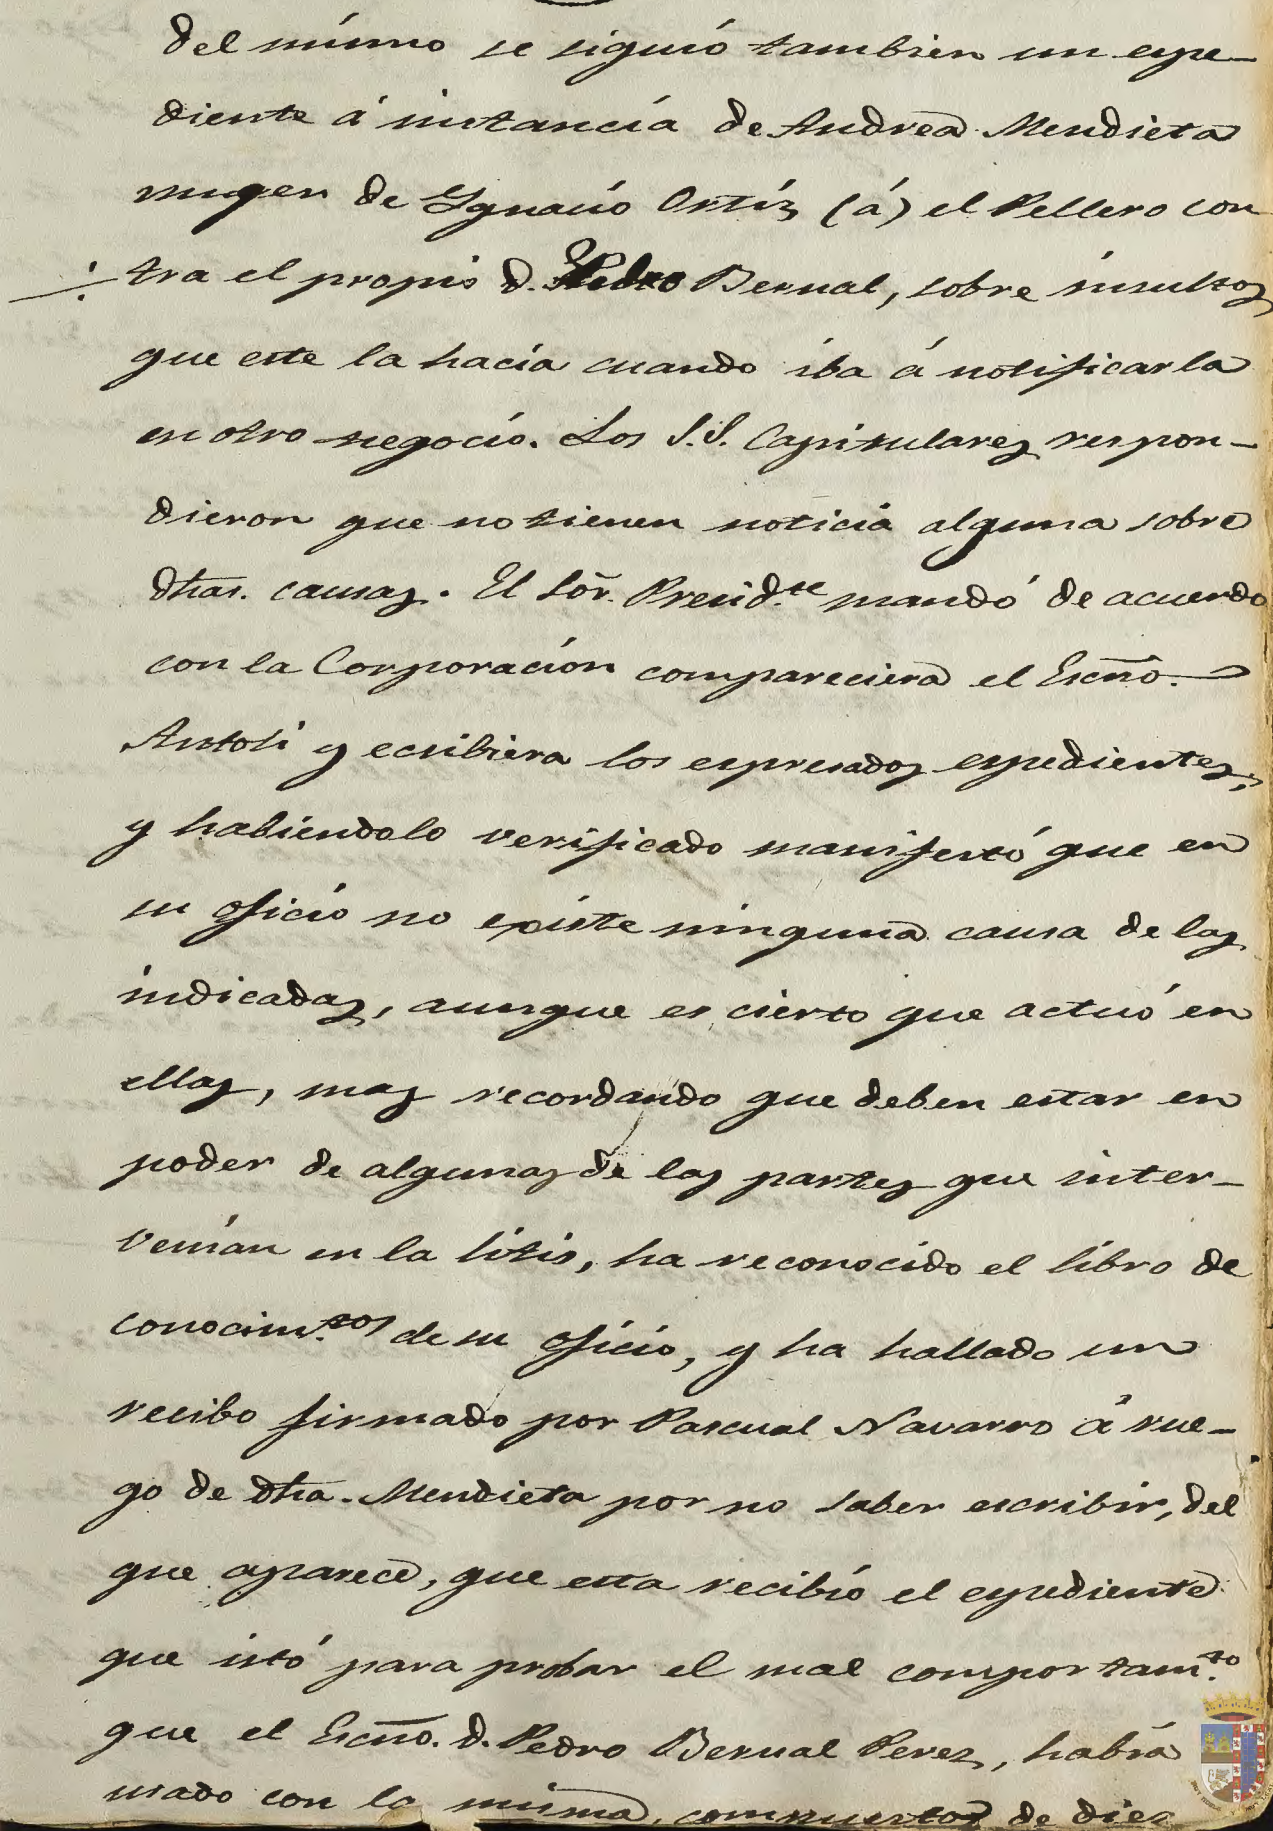 del mismo se siguió tambien un espe-
diente á instancía de Andrea Mendieta
muger de Ygnacio Ortíz (á) el Pellero con
tra el propio d. Pedro Bernal, sobre insultos
que este la hacía cuando iba á notificarla
en otro negocio. Los S.S. Capitulares respon-
dieron que no tienen noticia alguna sobre
dhas. causas. El Sōr. Presid.te mandó de acuerdo
con la Corporacion compareciera el Escño.
Antoli y ecsibiera los espresados espedientes,
y habiendolo verificado manifestó que en
su oficio no existe ninguna causa de las
indicadas, aunque es cierto que actuó en
ellas, mas recordando que deben estar en
poder de algunas de las partes que inter-
venían en la litis, ha reconocido el libro de
conocim.tos de su oficio, y ha hallado un
recibo firmado por Pascual Navarro á rue-
go de dha. Mendieta por no saber escribir, del
que aparece, que esta recibió el espediente
que istó para probar el mal comportam.to
que el Escño. d. Pedro Bernal Perez, habrá
usado con la misma, compuesto de diez